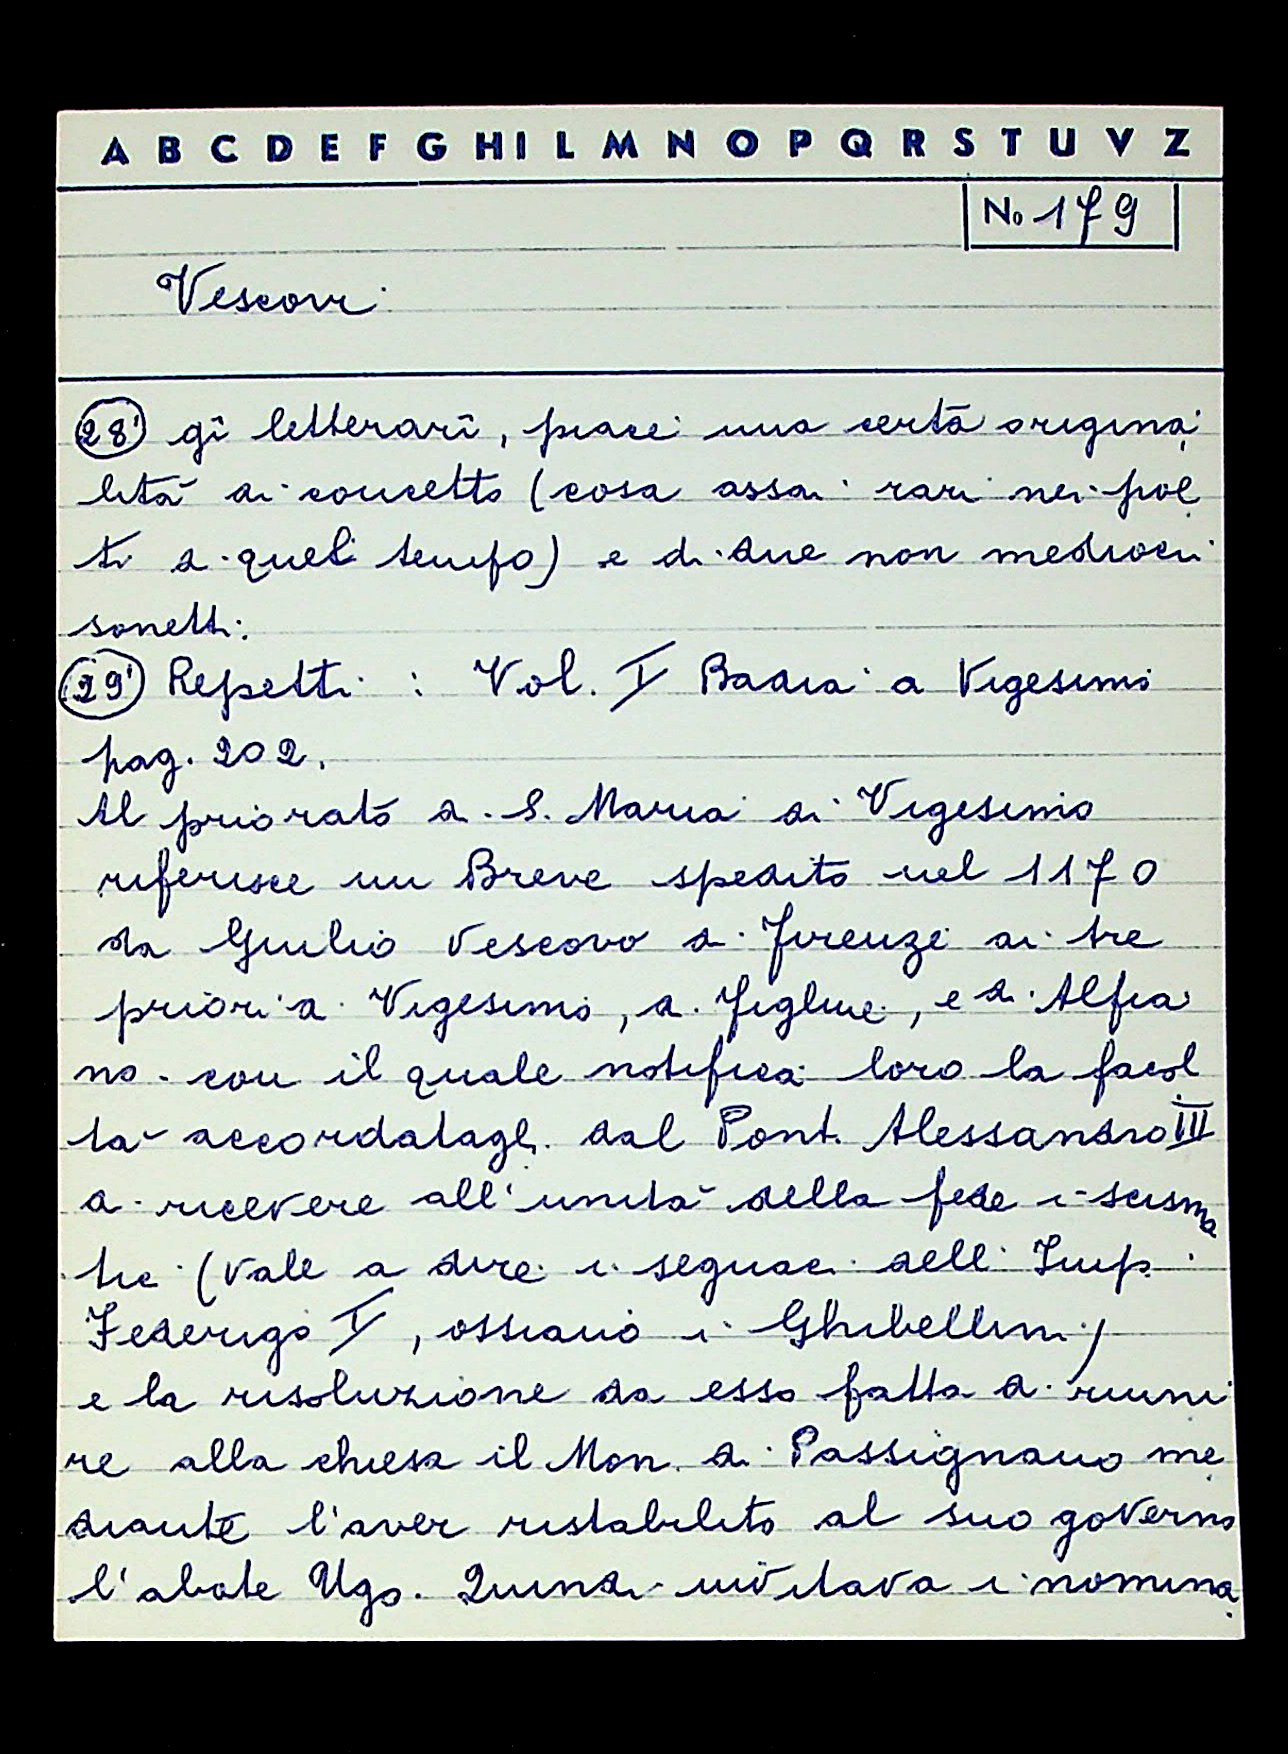 A B C D E F G H I L M N O P Q R S T U V Z
No 179
Vescovi
28' gî letterarî, piace una certa origina
lità di concetto (cosa assai rari nei poe
ti di quel tempo) e di due non mediocri
sonetti.
29' Repetti : Vol. I Badia a Vigesimo
pag. 202.
Al priorato di S. Maria di Vigesimo
riferisce un Breve spedito nel 1170
da Giulio Vescovo di Firenze ai tre
priori di Vigesimo, di Figline, e di Alfia
no - con il quale notifica loro la facol
tà accordatagli dal Pont. Alessandro III
di ricevere all'unità della fede i scisma
tici (vale a dire i seguaci dell' Imp.
Federigo I, ossiano i Ghibellini)
e la risoluzione da esso fatta di riuni
re alla chiesa il Mon. di Passignano me
diante l'aver ristabilito al suo governo
l'abate Ugo. Quindi invitava i nomina